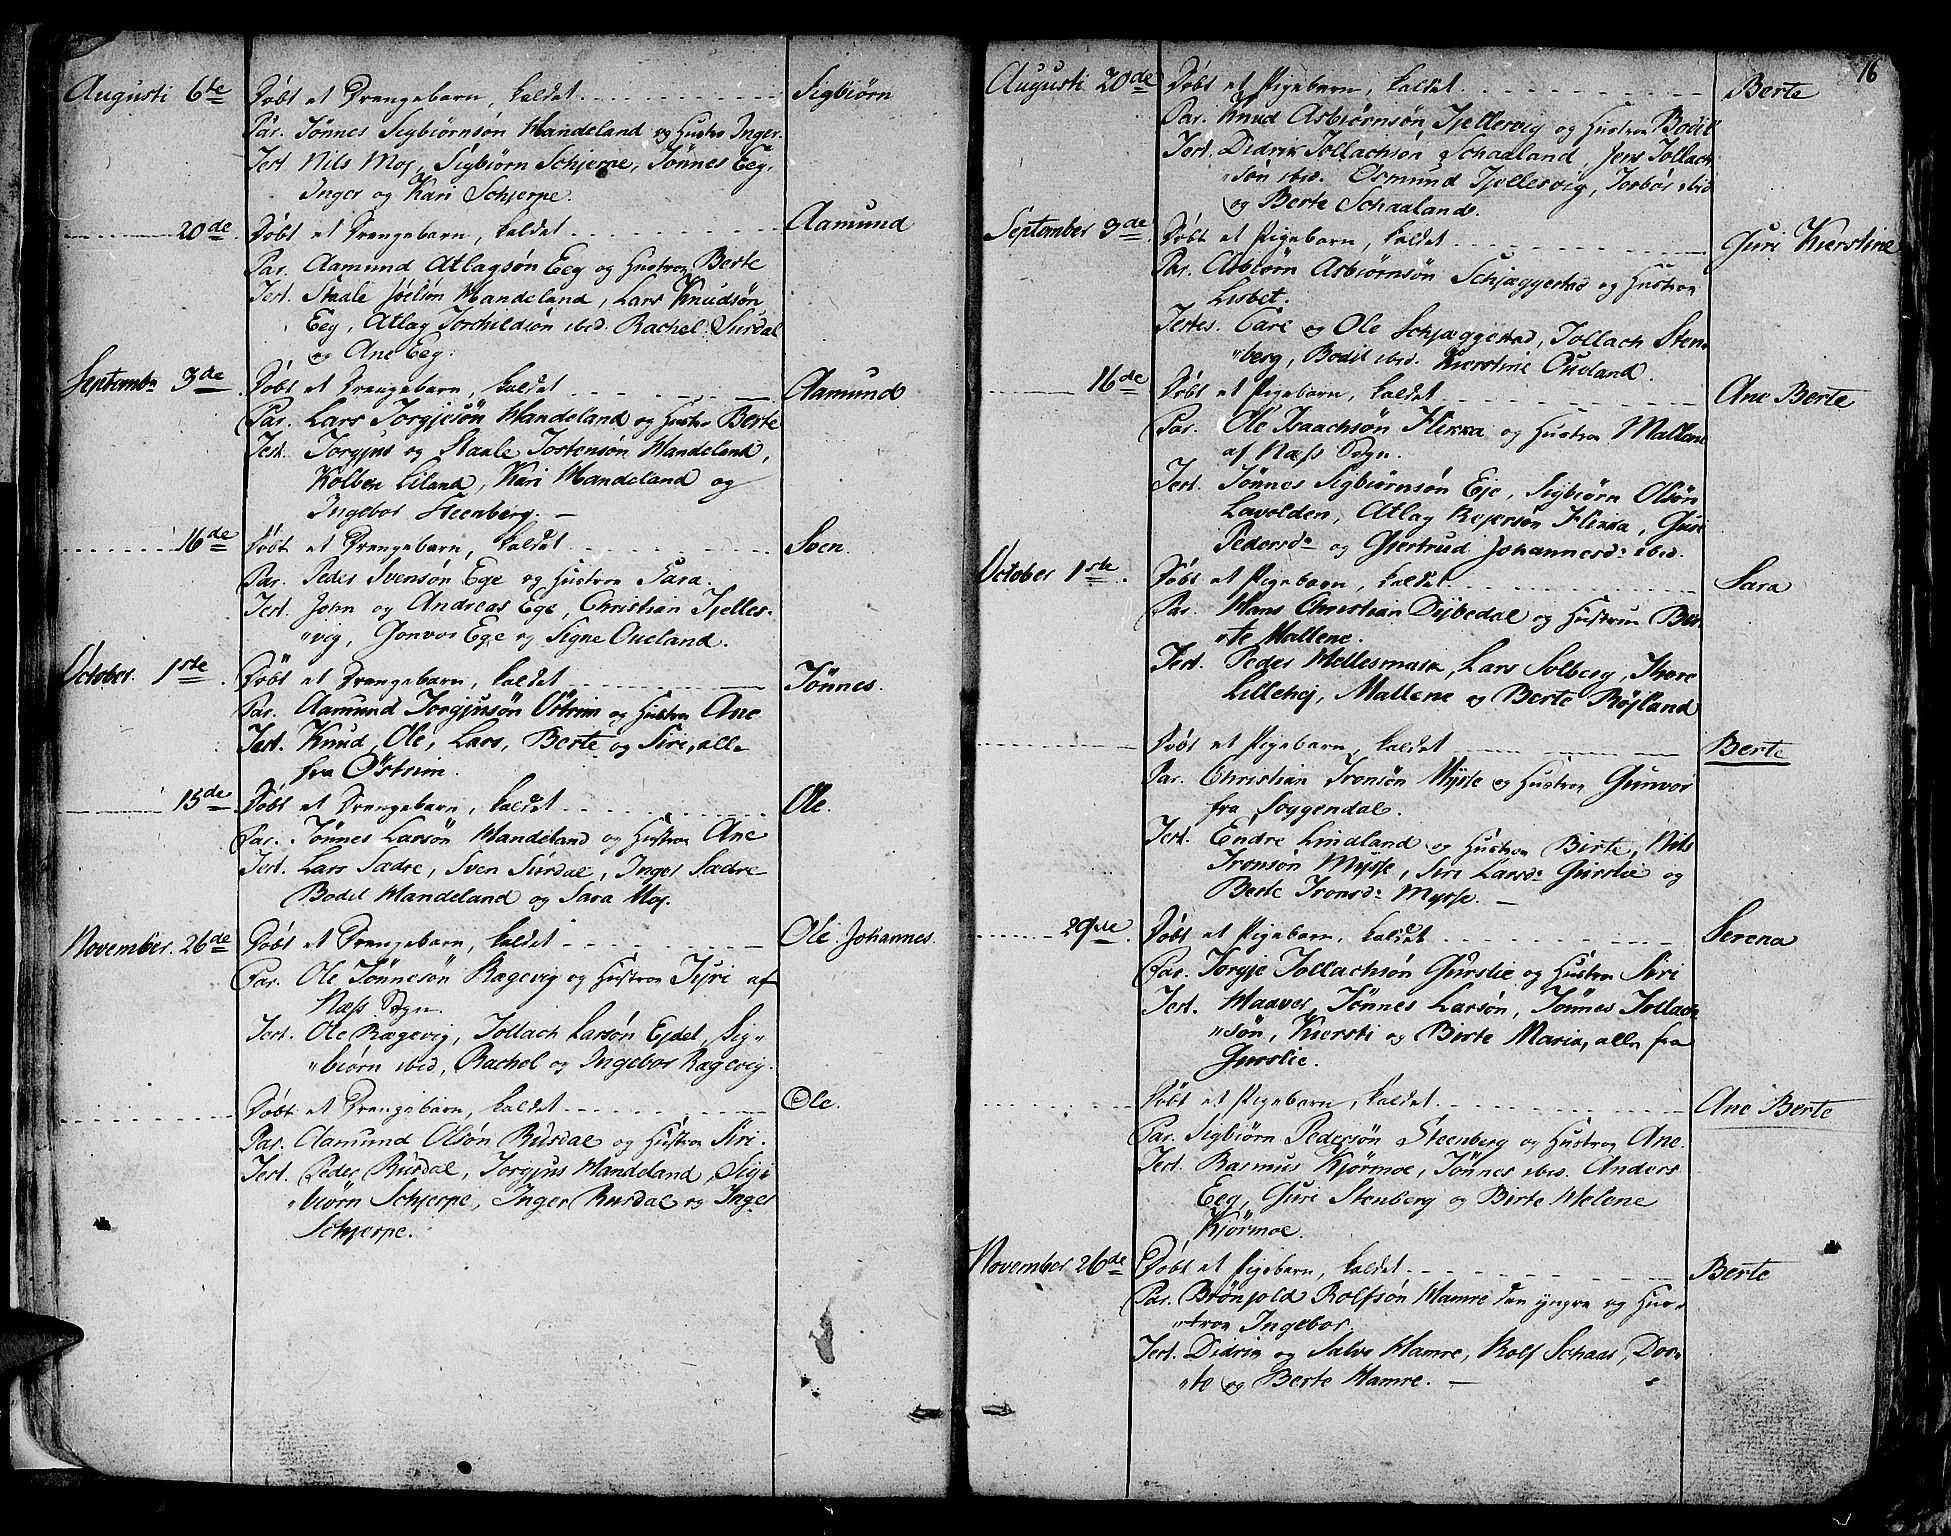 Augusti 6te Döbt et Drengebarn, kaldet Sigbiörn
Par. Tönnes Sigbiörnsön Handeland og Hustro Inger.
Test. Nils Moj, Sigbiörn Schjerpe, Tönnes Eeg,
Inger og Kari Schjerpe.
20de Döbt et Drengebarn, kaldet Aamund
Par. Aamund Atlagsön Eeg og Hustron Berte
Test. Staale Joelsön Handeland, Lars Knudsön
Eeg, Atlag Torchildsön ibid. Rachel Surdal
og Ane Eeg.
Septembr 3de Döbt et Drengebarn, kaldet Aamund
Par. Lars Torgjusön Handeland og Hustro Berte
Test. Torgjus og Staale Tostensön Handeland,
Kolben Liland, Kari Handeland og
Ingebor Steenberg. —
16de Döbt et Drengebarn, kaldet Sven.
Par. Peder Svensön Ege og Hustron Sara.
Test. John og Andreas Ege, Christian Tjelles-
"vig, Gonvor Ege og Signe Oueland.
October. 1ste Döbt et Drengebarn, kaldet Tönnes.
Par. Aamund Torgjusön Östrim og Hustron Ane
Test. Knud, Ole, Lars, Berte og Siri, alle
fra Östrim.
15de Döbt et Drengebarn, kaldet Ole.
Par. Tönnes Larsön Handeland og Hustron Ane
Test. Lars Sædre, Sven Surdal, Inger Sædre
Bodil Handeland og Sara Moj.
November. 26de Döbt et Drengebarn, kaldet Ole Johannes.
Par. Ole Tönnesön Rægevig og Hustron Tyri af
Næss Sogn.
Test. Ole Rægevig, Tollach Larsön Ejdel, Sig-
"biörn ibid, Rachel og Ingebor Rægevig.
Döbt et Drengebarn, kaldet Ole.
Par. Aamund Olsön Rusdal og Hustron Siri.
Test. Peder Rusdal, Torgjus Handeland, Sig-
"biörn Schjerpe, Inger Rusdal og Inger
Schjerpe.
16
Augusti 20de Döbt et Pigebarn, kaldet Berte
Par. Knud Asbiörnsön Tjellesvig og Hustron Bodil
Test. Didrik Tollachsön Schaaland, Jens Tollach
"sön ibid. Osmund Tjellesvig, Torbor ibid
og Berte Schaaland.
September 3de Döbt et Pigebarn, kaldet Guri Kierstine
Par. Asbiörn Asbiörnsön Schjæggestad og Hustron
Lisbet.
Testes. Carl og Ole Schjæggestad, Tollach Sten-
"berg, Bodil ibid. Kierstine Oueland.
16de Döbt et Pigebarn, kaldet Ane Berte
Par. Ole Isaachsön Flikka og Hustron Mallene
af Næss Sogn.
Test. Tönnes Sigbiörnsön Eje, Sigbiörn Olsön
Lavolden, Atlag Rejersön Flikka, Guri
Pedersdr og Giertrud Johannesdr ibid.
October 1ste Döbt et Pigebarn, kaldet Sara
Par. Hans Christian Dybedal og Hustron Ber-
"te Mallene.
Test. Peder Hellesmark, Lars Solberg, Thore
Lillehej, Mallene og Berte Röjland
Döbt et Pigebarn, kaldet Berte
Par. Christian Tronsön Mysse og Hustron Gunvor
fra Soggendal.
Test. Endre Lindland og Hustron Birte, Nils
Tronsön Mysse, Siri Larsdr Gurslie og
Berte Tronsdr Mysse. —
29de Döbt et Pigebarn, kaldet Serena
Par. Torgje Tollachsön Gurslie og Hustron Siri
Test. Haaver, Tönnes Larsön, Tönnes Tollach
"sön, Kiersti og Birte Maria, alle fra
Gurslie.
Döbt et Pigebarn, kaldet Ane Berte
Par. Sigbiörn Pedersön Steenberg og Hustron Ane.
Test. Rasmus Kjörmoe, Tönnes ibid. Anders
Eeg, Guri Stenberg og Birte Helene
Kjörmoe.
November 26de Döbt et Pigebarn, kaldet Berte
Par. Brönjold Rolfsön Hamre den yngre og Hus-
"tron Ingebor.
Test. Didrik og Salve Hamre, Rolf Schaar, Dor-
"te og Berte Hamre. —